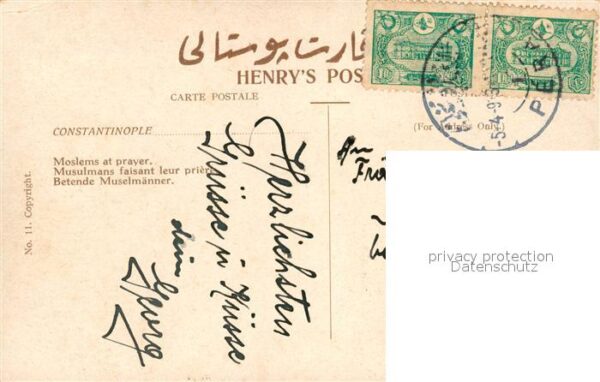 قارت پوستالی
HENRY'S POS
CARTE POSTALE
CONSTANTINOPLE
(For Address Only.)
Moslems at prayer.
Musulmans faisant leur prière
Betende Muselmänner.
No. 11. Copyright.
Herzlichsten
Grüsse u Küsse
dein
Georg
An
PERA
privacy protection
Datenschutz